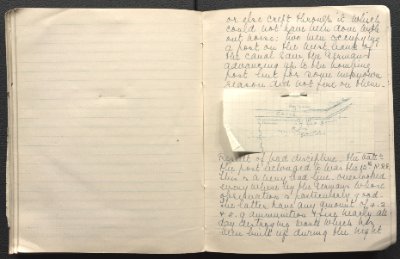 or else crept through it which
could not have been done with
out noise: two men occupying
a post on the west bank of
the canal saw the Germans
advancing up to the bombing
post but for some unknown
reason did not fire on them.
Result of bad discipline. The
the post belonged to was the 10th
This is a very bad line. Overlooked
everywhere by the Germans whose
observation is particularly good.
The latter have any amount of 4.2
& 5.9 ammunition & fire nearly all
day destroying posts which has
been built up during the night